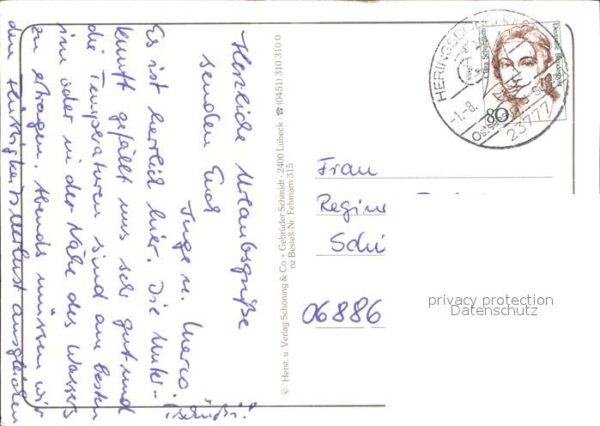 Herzliche Urlaubsgrüße
senden Euch
Inge u. Marco
Es ist herrlich hier. Die Unter-
kunft gefällt uns sehr gut und
die Temperaturen sind am besten
im oder in der Nähe des Wassers
zu ertragen. Abends müssen wir
den Flüssigkeitsverlust ausgleichen
© Herst. u. Verlag Schöning & Co + Gebrüder Schmidt · 2400 Lübeck · ☎ (0451) 310 310 0
Bestell-Nr. Fehmarn 315
HERINGSDORF
-1.-8.
23777
80
Clara Schumann
Deutsche Bundespost
Frau
Regine
Schi
06886
privacy protection
Datenschutz